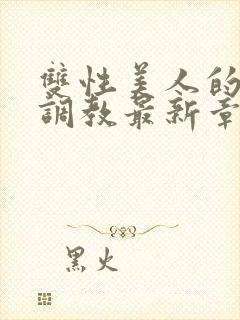 雙性美人的
調教最新章
黑火